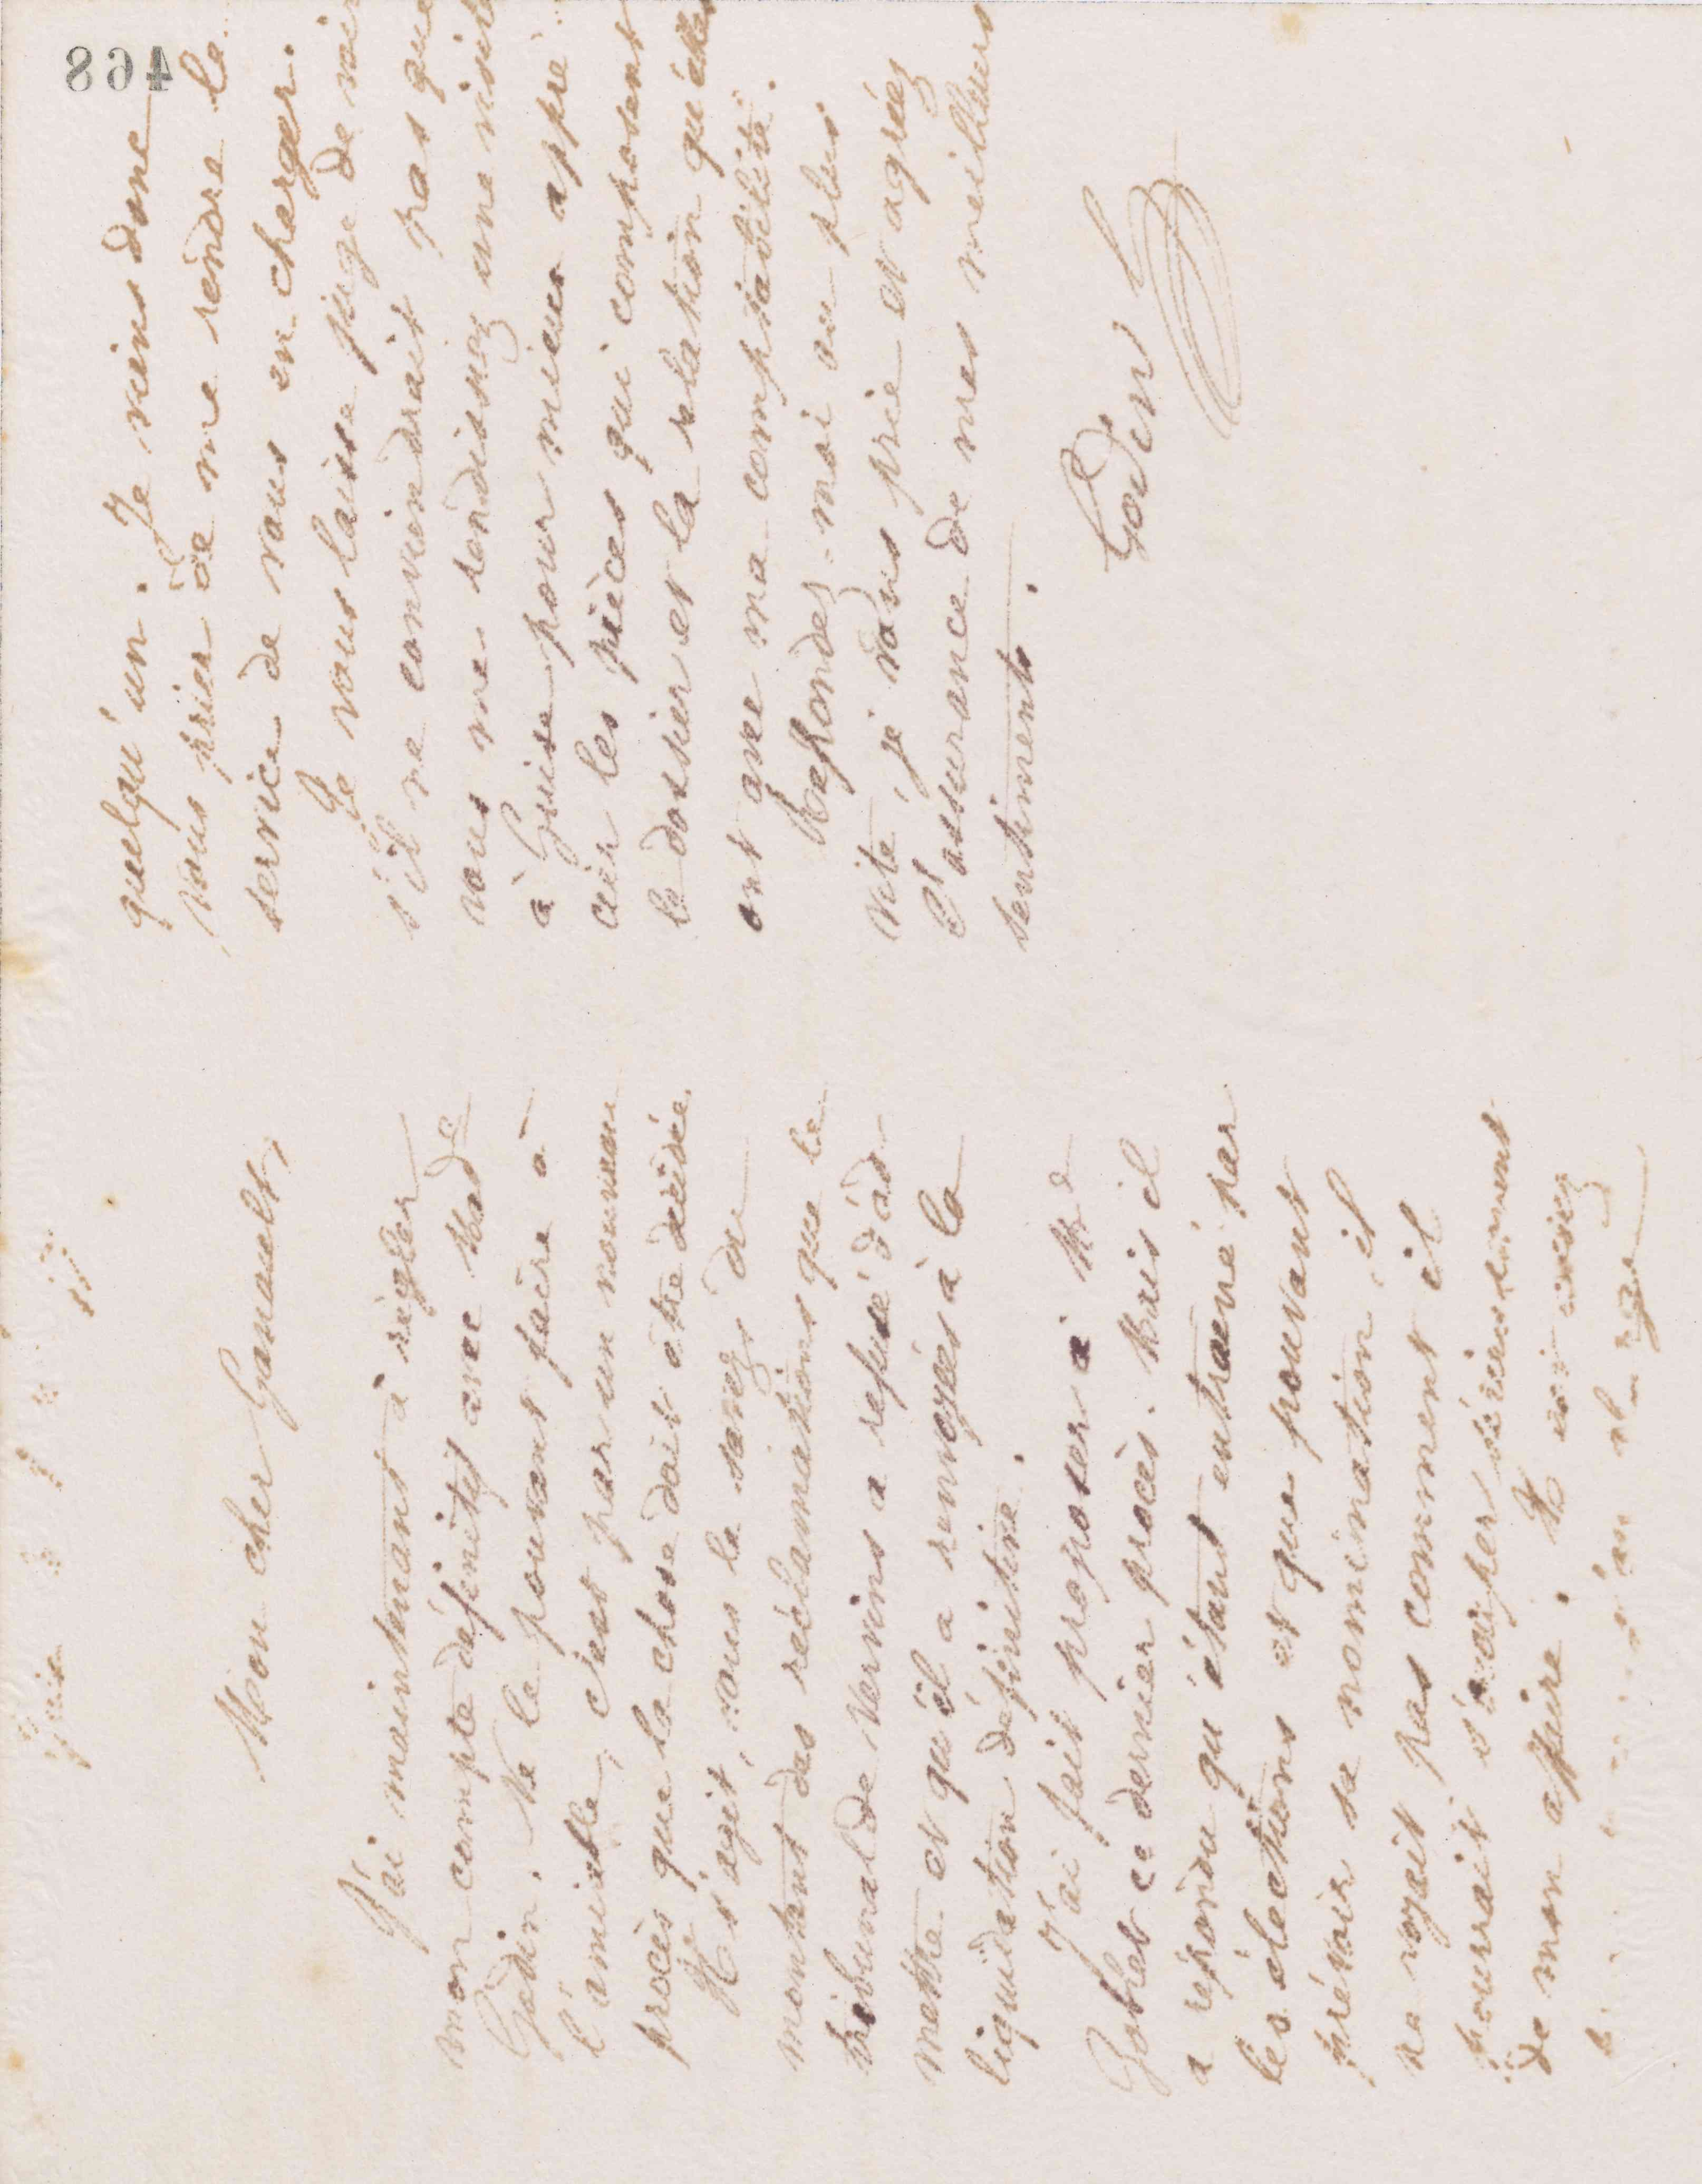 Guise
Mon cher Ganault,
J'ai maintenant à régler
mon compte définitif avec Made
Godin. Ne le pouvant faire à
l'amiable, c'est par un nouveau
procès que la chose doit être décidée.
Il s'agit, vous le savez, du
montant des réclamations que le
tribunal de Vervins a refusé d'ad-
mettre et qu'il a renvoyées à la
liquidation définitive.
J'ai fait proposer à Me
ce dernier procès. Mais il
a répondu qu'étant entraené par
les élections et que pouvant
prévoir sa nomination, il
ne voyait pas comment il
pourrait s'occuper sérieusement
de mon affaire. Il est
quelqu'un. Je viens donc
vous prier de me rendre le
service de vous en charger.
Je vous laisse juge de voir
s'il ne conviendrait pas que
vous me rendissiez une visite
à Guise pour mieux appré-
cier les pièces qui composent
le dossier et la relation qu'elles
ont avec ma comptabilité.
Répondez-moi au plus
vite, je vous prie et agréez
l'assurance de mes meilleurs
sentiments.
Godin
468